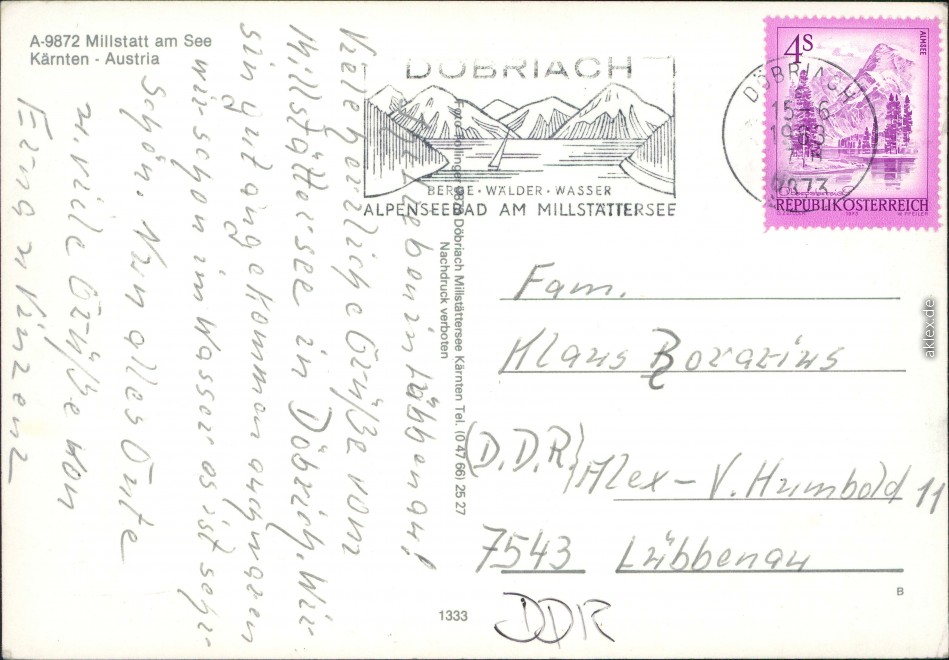 A-9872 Millstatt am See
Kärnten - Austria
DÖBRIACH
BERGE · WÄLDER · WASSER
ALPENSEEBAD AM MILLSTÄTTERSEE
DÖBRIACH
15-6
9873
4S
ALMSEE
REPUBLIK ÖSTERREICH
1973
W. PFEILER
Lieben in Lübbenau!
Viele herzliche Grüße vom
Millstätter see in Döbrich. Wir
sin gut angekommen auch waren
wir schon im Wasser es ist sehr
schön. Nun alles Gute
u. viele Grüße von
Erna u Vinzenz
9873 Döbriach Millstättersee Kärnten Tel. (0 47 66) 25 27
Nachdruck verboten
Fam.
Klaus
(D.D.R) Alex-V. Humbold 11
7543 Lübbenau
DDR
1333
B
aklex.de